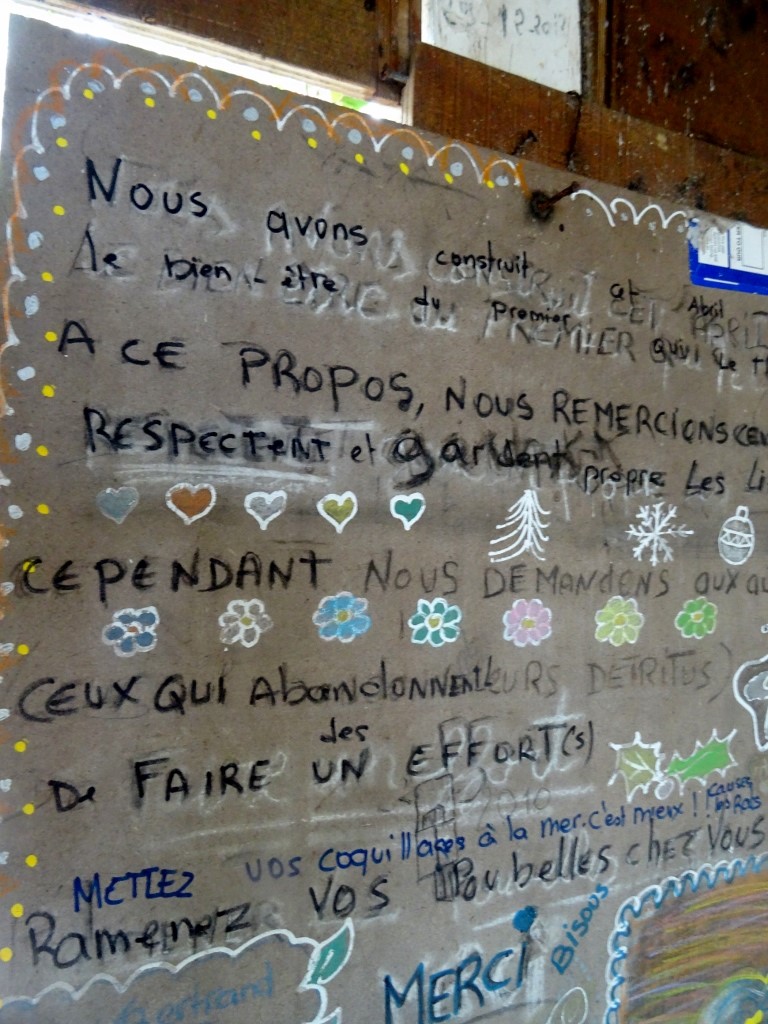 Nous avons construit cet Abri
le bien-être du Premier qui le
A CE PROPOS, NOUS REMERCIONS CEU
RESPECTENT et gardent propre Les Li
CEPENDANT NOUS DEMANDENS aux au
CEUX QUI AbandONNENT LEURS DETRITUS)
De FAIRE UN des EFFORT(s)
METTEZ vos coquillages à la mer. c'est mieux ! causes les Rats
Ramenez VOS Poubelles chez VOUS
MERCI Bisous
Bertrand